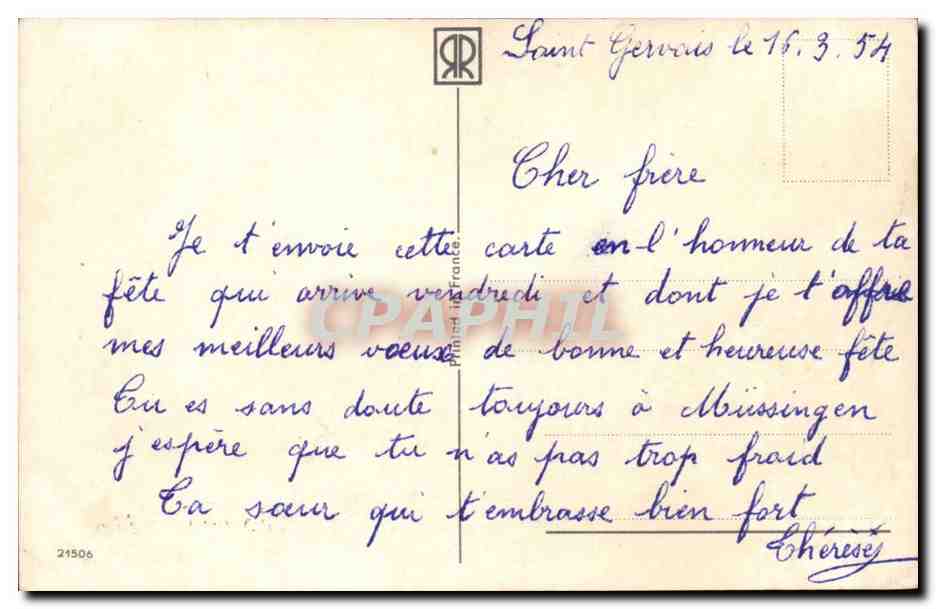 Saint Gervais le 16.3.54
Cher frère
Je t'envoie cette carte en l'honneur de ta
fête qui arrive vendredi et dont je t'offre
mes meilleurs voeux de bonne et heureuse fête
Tu es sans doute toujours à Müssingen
j'espère que tu n'as pas trop froid
Ta sœur qui t'embrasse bien fort
Thérèse
Printed in France.
CPAPHIL
21506